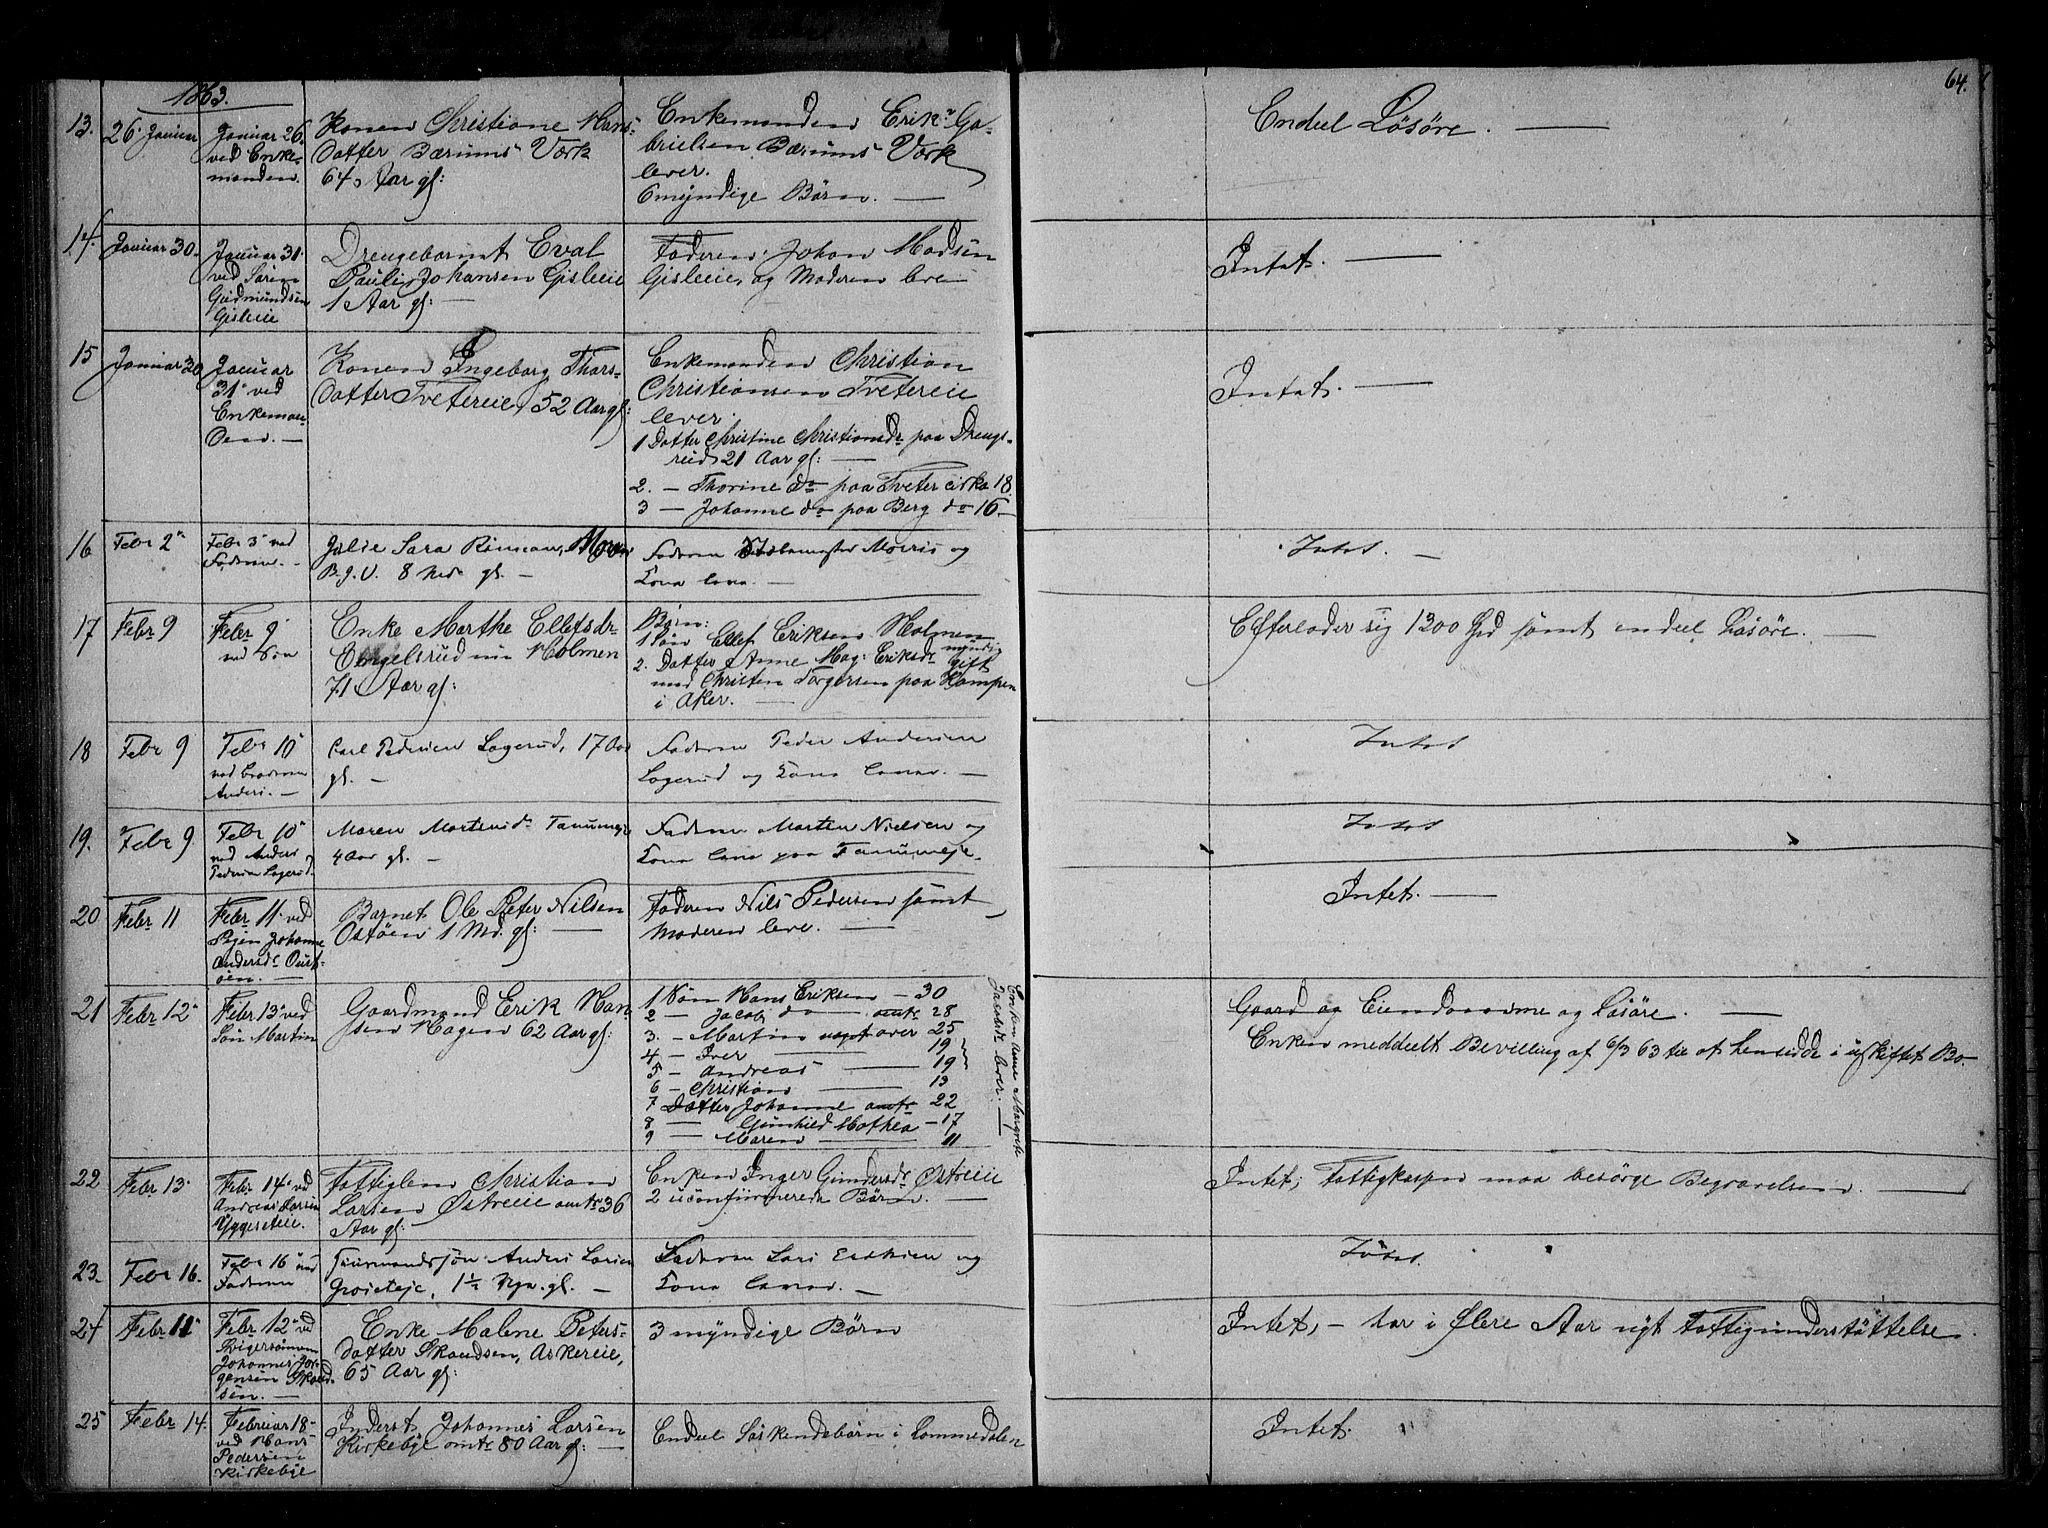 64.
1863.
13.
26. Januar
Januar 26.
ved Enke-
manden.
Konen Christiane Hans-
datter Bærums Værk
64 Aar gl:
Enkemanden Erik Ga-
brielsen Bærums Værk
lever.
6 myndige Børn. —
Endeel Løsøre. —
14.
Januar 30.
Januar 31
ved Søren
Gudmundsen
Gisleeie
Drengebarnet Eval
Pauli Johansen Gisleeie
1 Aar gl: —
Faderen Johan Madsen
Gisleeie, og Moderen leve
Intet. —
15
Januar 30
Januar
31 ved
Enkeman-
den. —
Konen Ingeborg Thors-
datter Tvetereie, 52 Aar gl:
Enkemanden Christian
Christiansen Tvetereie
lever.
1 Datter Christine Christiansdr paa Drengs-
rud 21 Aar gl: —
2. — Thorine do paa Tveter cirka 18.
3 — Johanne do paa Berg do 16. —
Intet. —
16
Febr 2
Febr 3 ved
Faderen. —
Julie Sara
8 gl. —
Faderen Morris og
Kona leve. —
Intet. —
17
Febr 9
Febr 9
ved Søn
Enke Marthe Ellefsdr
Engelsrud nu Holmen
71 Aar gl:
Børn:
1 Søn Ellef Eriksen Holmen
myndig
2. Datter Anne Mag: Eriksdr gift
med Christen Torgersen paa Kampen
i Aker. —
Efterlader sig 1300 Spd samt endeel Løsøre. —
18
Febr 9
Febr 10
ved Broderen
Anders. —
Carl Pedersen Lagerud, 17 Aar
gl. —
Faderen Peder Andersen
Lagerud og Kona leve. —
Intet
19.
Febr 9.
Febr 10
ved Anders
Pedersen Lagerud.
Maren Martinsdr Tanumeje
4 Aar gl. —
Faderen Morten Nielsen og
Kona leve paa Tanumeje.
Intet
20
Febr 11
Febr 11 ved
Pigen Johanne
Andersdr Oust-
øen. —
Barnet Ole Peter Nilsen
Ostøen 1 Md. gl: —
Faderen Nils Pedersen samt
Moderen leve. —
Intet. —
21
Febr 12
Febr 13 ved
Søn Martin
Gaardmand Erik Han-
sen Hagen 62 Aar gl:
1 Søn Hans Eriksen — 30
2 — Jacob do — omtr 28
3. — Martin noget over 25
4 — Iver — 19
5 — Andreas — 19
6 — Christian — 13
7 Datter Johanne omtr 22
8 — Gunhild Mathea — 17
9 — Maren — 11
Enken Anne Margrethe
Jacobsdr lever. —
Gaard og Eiendomme og Løsøre. —
Enken meddeelt Bevilling af 6/3 63 til at hensidde i uskiftet Bo —
22
Febr 13
Febr 14 ved
Andreas Larsen
Yggeseteie.
Fattiglem Christian
Larsen Østreeie omtr 36
Aar gl:
Enken Inger Gundersdr Østreeie
2 uconfirmerede Børn. —
Intet, Fattigkassen maa besørge Begravelsen. —
23.
Febr 16.
Febr 16 ved
Faderen
Huusmandssøn Anders Larsen
1½ gl. —
Faderen Lars og
Kona leve. —
Intet.
24
Febr 11
Febr 12 ved
Svigersønnen
Johannes Jør-
gensen Skaud-
sen. —
Enke Malene Peters-
datter Skaudsen, Askereie,
65 Aar gl:
3 myndige Børn
Intet, — har i flere Aar nydt Fattigunderstøttelse.
25
Febr 14.
Februar 18
ved Hans
Pedersen
Kirkebye
Inderst Johannes Larsen
Kirkebye omtr 80 Aar gl: —
Endeel Søskendebørn i Lommedalen
Intet.